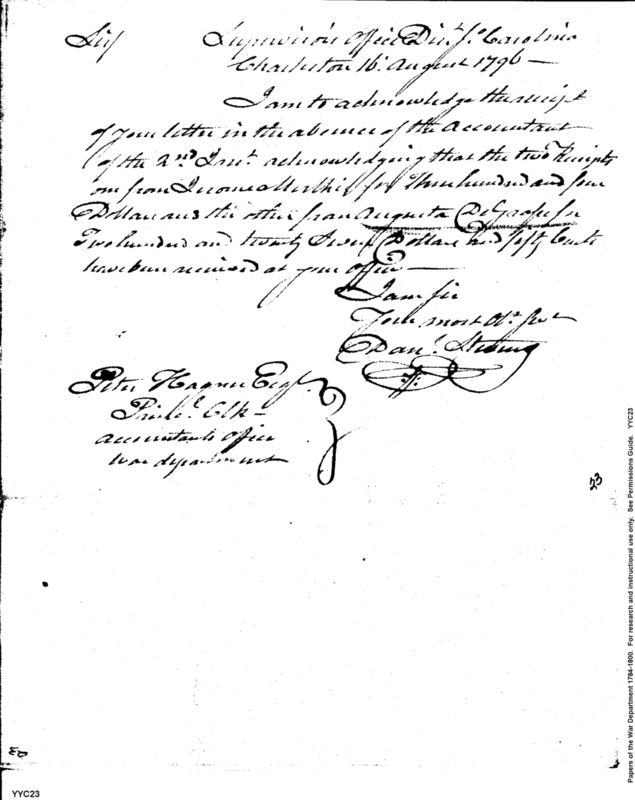 Sir Supervisor's Office Dist. So. Carolina
Charleston 16 August 1796 —
I am to acknowledge the receipt
of your letter in the absence of the accountant
of the 2nd Inst. acknowledging that the two Receipts
one from for Three hundred and four
Dollars and the other from Augusta DeGrasse for
Two hundred and twenty Seven Dollars and fifty Cents
have been received at your office —
I am Sir
Your most Ob. Sert
Dan. Stevens
Peter Hagner Esqr.
Prinl. Clk —
accountants office
War department
23
YYC23
Papers of the War Department 1784-1800. For research and instructional use only. See Permissions Guide. YYC23